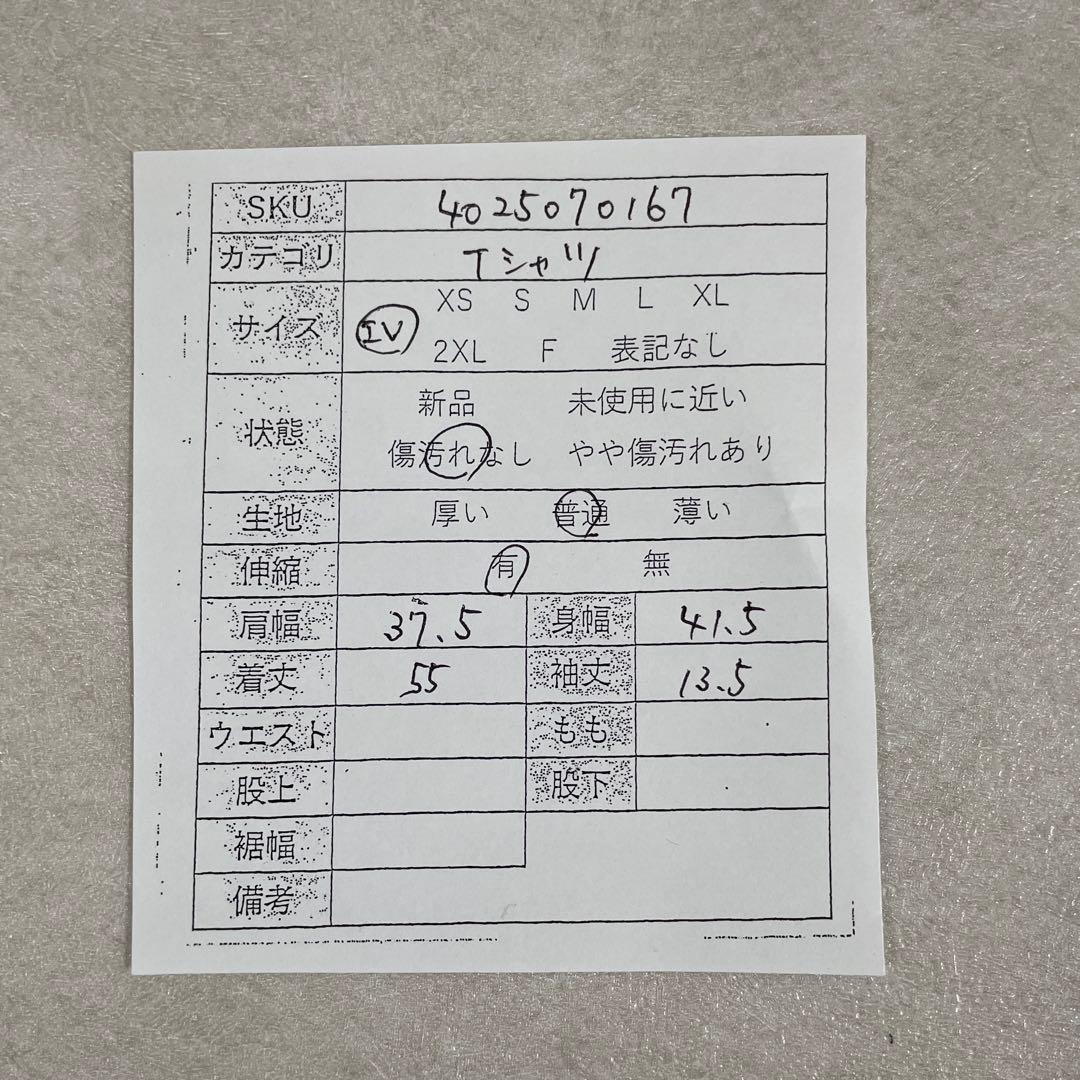 SKU 4025070167
カテゴリ Tシャツ
サイズ IV XS S M L XL
2XL F 表記なし
状態 新品 未使用に近い
傷汚れなし やや傷汚れあり
生地 厚い 普通 薄い
伸縮 有 無
肩幅 37.5 身幅 41.5
着丈 55 袖丈 13.5
ウエスト もも
股上 股下
裾幅
備考